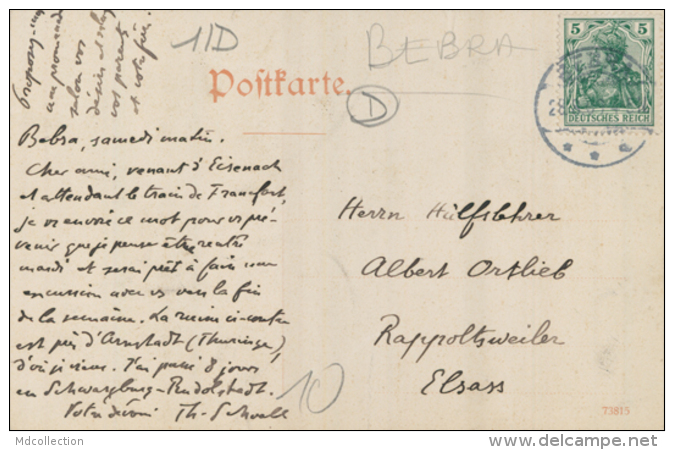 11D
BEBRA
D
5
5
DEUTSCHES REICH
Postkarte.
Bebra, samedi matin.
Cher ami, venant d'Eisenach
et attendant le train de Francfort,
je vs envoie ce mot pour vs pré-
venir que je pense être rentré
mardi et serai prêt à faire une
excursion avec vs vers la fin
de la semaine. La ruine ci-contre
est près d'Arnstadt (Thuringe),
d'où je viens. J'ai passé 8 jours
en Schwarzburg-Rudolstadt.
Votre dévoué Th. Schoell
Herrn Hülfslehrer
Albert Ortlieb
Rappoltsweiler
Elsass
10
73815
Mdcollection
www.delcampe.net